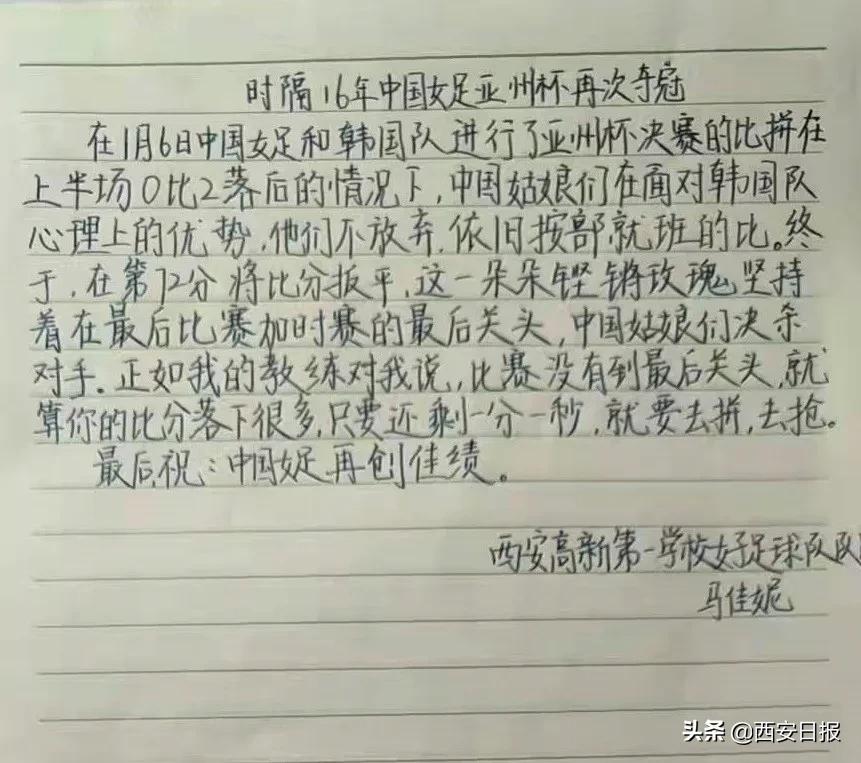 时隔16年中国女足亚州杯再次夺冠
在1月6日中国女足和韩国队进行了亚州杯决赛的比拼在
上半场0比2落后的情况下,中国姑娘们在面对韩国队
心理上的优势,他们不放弃.依旧按部就班的比。终
于,在第72分将比分扳平,这一朵朵铿锵玫瑰坚持
着在最后比赛加时赛的最后关头,中国姑娘们决杀
对手.正如我的教练对我说,,比赛没有到最后关头,就
算你的比分落下很多,只要还剩一分一秒,就要去拼,去抢。
最后,祝:中国女足再创佳绩。
西安高新第一学校女子足球队队
马佳妮
头条 @西安日报